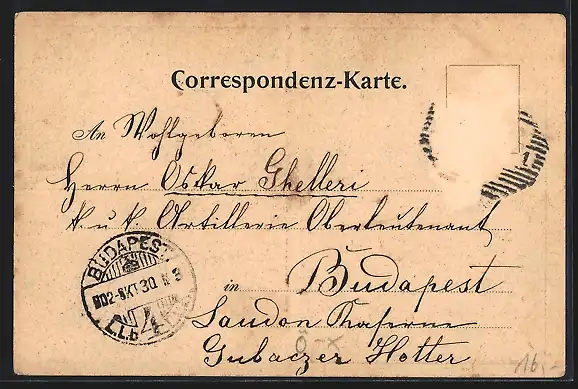 Correspondenz-Karte.
An Wohlgeboren
Herrn Oskar Ghelleri
k. u. k. Artillerie Oberleutenant
in Budapest
Laudon Kaserne
Gubaczer Hotter
BUDAPEST
902 OKT 30 N 3
O-X
16,-